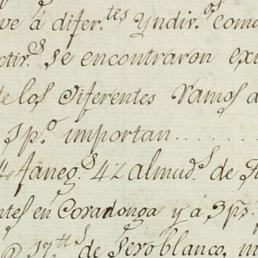 ve á difer.tes Yndir.os com
ctir.s se encontraron ex
de los diferentes Ramos d
Sp.o importan
4 faneg.s 42 almud.s de
ntes en Coradonga y á 3 p.s
17 tt.s de Sero blanco, in